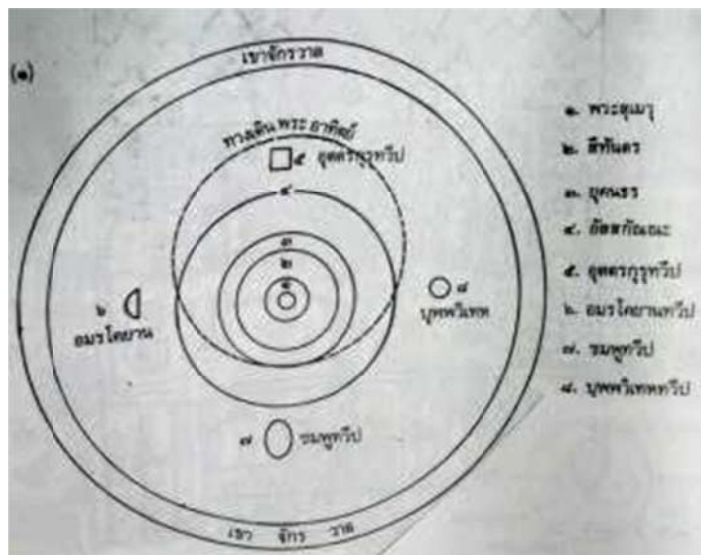 เขาจักรวาด
(๑)
ทางเดินพระอาทิตย์
๕ อุตตรกุรุทวีป
๔
๓
๒
๑
๖
อมรโคยาน
๘
บุพพวิเทห
๗ ชมพูทวีป
เขา จักร วาด
๑. พระสุเมรุ
๒. สีทันดร
๓. ยุคนธร
๔. อัสสกัณณะ
๕. อุตตรกุรุทวีป
๖. อมรโคยานทวีป
๗. ชมพูทวีป
๘. บุพพวิเทหทวีป